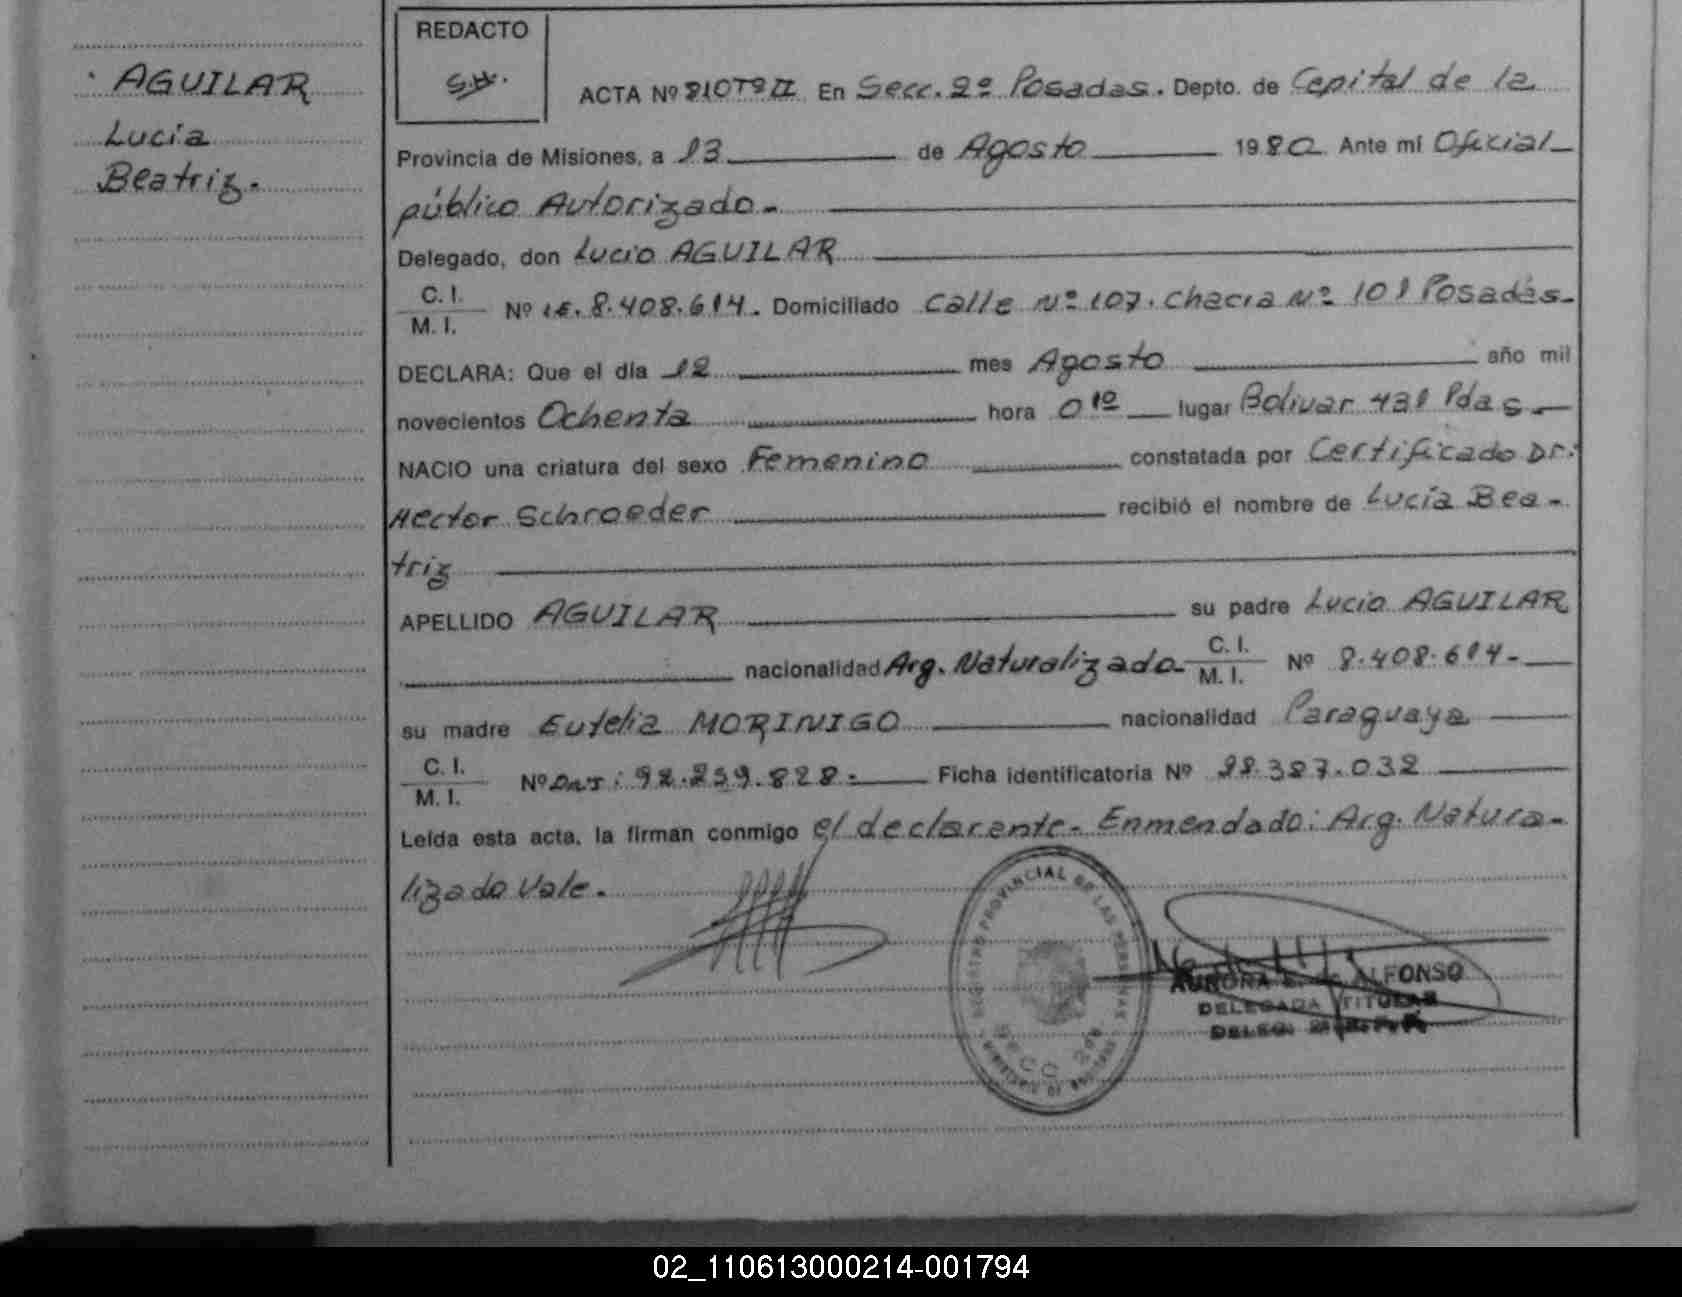 AGUILAR
Lucia
Beatriz.
REDACTO
ACTA Nº 810 Tº II En Secc. 2º Posadas. Depto. de Capital de la
Provincia de Misiones, a 13 de Agosto 1980 Ante mí Oficial
público Autorizado.
Delegado, don Lucio AGUILAR
C. I.
M. I. Nº L.E. 8.408.614. Domiciliado Calle Nº 107. Chacra Nº 101 Posadas.
DECLARA: Que el día 12 mes Agosto año mil
novecientos Ochenta hora 0 10 lugar Bolivar 431 Pdas.
NACIO una criatura del sexo Femenino constatada por Certificado Dr:
Hector Schroeder recibió el nombre de Lucía Bea-
triz
APELLIDO AGUILAR su padre Lucio AGUILAR
nacionalidad Arg. Naturalizado C. I.
M. I. Nº 8.408.614.
su madre Eutelia MORINIGO nacionalidad Paraguaya
C. I.
M. I. Nº 92.259.828. Ficha identificatoria Nº 28.327.032
Leída esta acta, la firman conmigo el declarante. Enmendado: Arg. Natura-
lizado Vale.
REGISTRO PROVINCIAL DE LAS PERSONAS
SECC 2da
AURORA ALFONSO
DELEGADA TITULAR
02_110613000214-001794